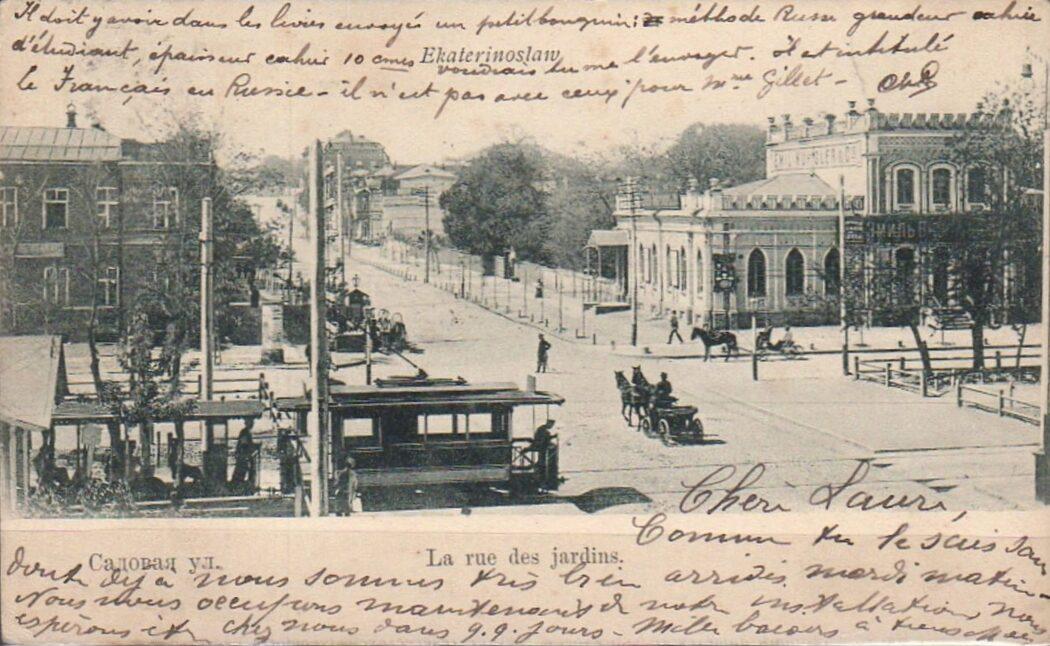 Il doit y avoir dans les livres envoyés un petit bouquin: méthode Russe grandeur cahier
d'étudiant, épaisseur cahier 10 cmes voudrais tu me l'envoyer. Il est intitulé
Ekaterinoslaw
le Français en Russie - il n'est pas avec ceux pour Mme Gillet -
ЭМИЛЬ
Cher Lauri,
Comme tu le sais sans
Садовая ул.
La rue des jardins.
doute déjà nous sommes très bien arrivés mardi matin -
Nous nous occupons maintenant de notre installation, nous
espérons être chez nous dans q.q. jours - Mille baisers à tous